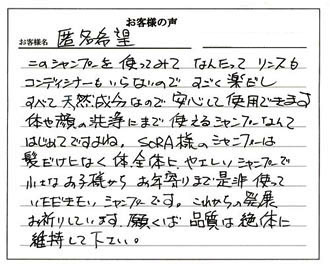 お客様の声
お客様名 匿名希望
このシャンプーを使ってみて なんたって リンスも
コンディショナーもいらないので すごく楽だし
すべて天然成分なので安心して使用できます
体や顔の洗浄にまで使えるシャンプーなんて
はじめてですよね。SORA様のシャンプーは
髪だけじなく体全体に やさしいシャンプーで
小さなお子様からお年寄りまで是非使って
いただきたいシャンプーです。これからの発展
お祈りしています。願くば 品質は絶体に
維持して下さい。